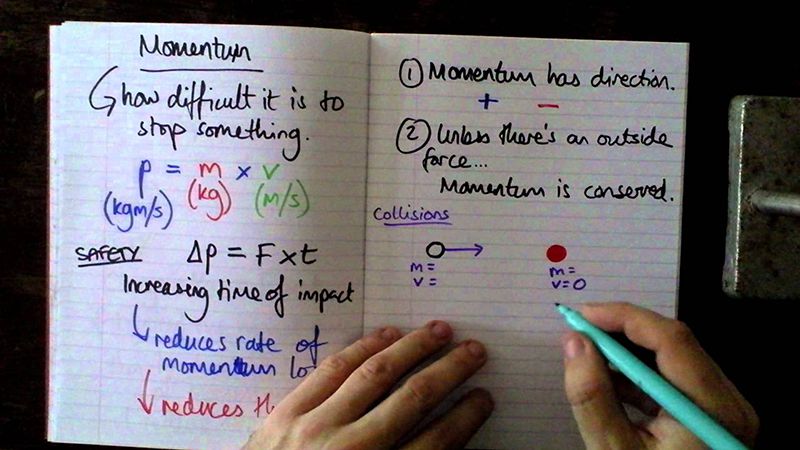 Momentum
how difficult it is to
stop something.
p = m × v
(kgm/s) (kg) (m/s)
SAFETY Δp = F × t
Increasing time of impact
reduces rate of
momentum
reduces
① Momentum has direction.
+ −
② Unless there's an outside
force...
Momentum is conserved.
Collisions
m = m =
v = v = 0